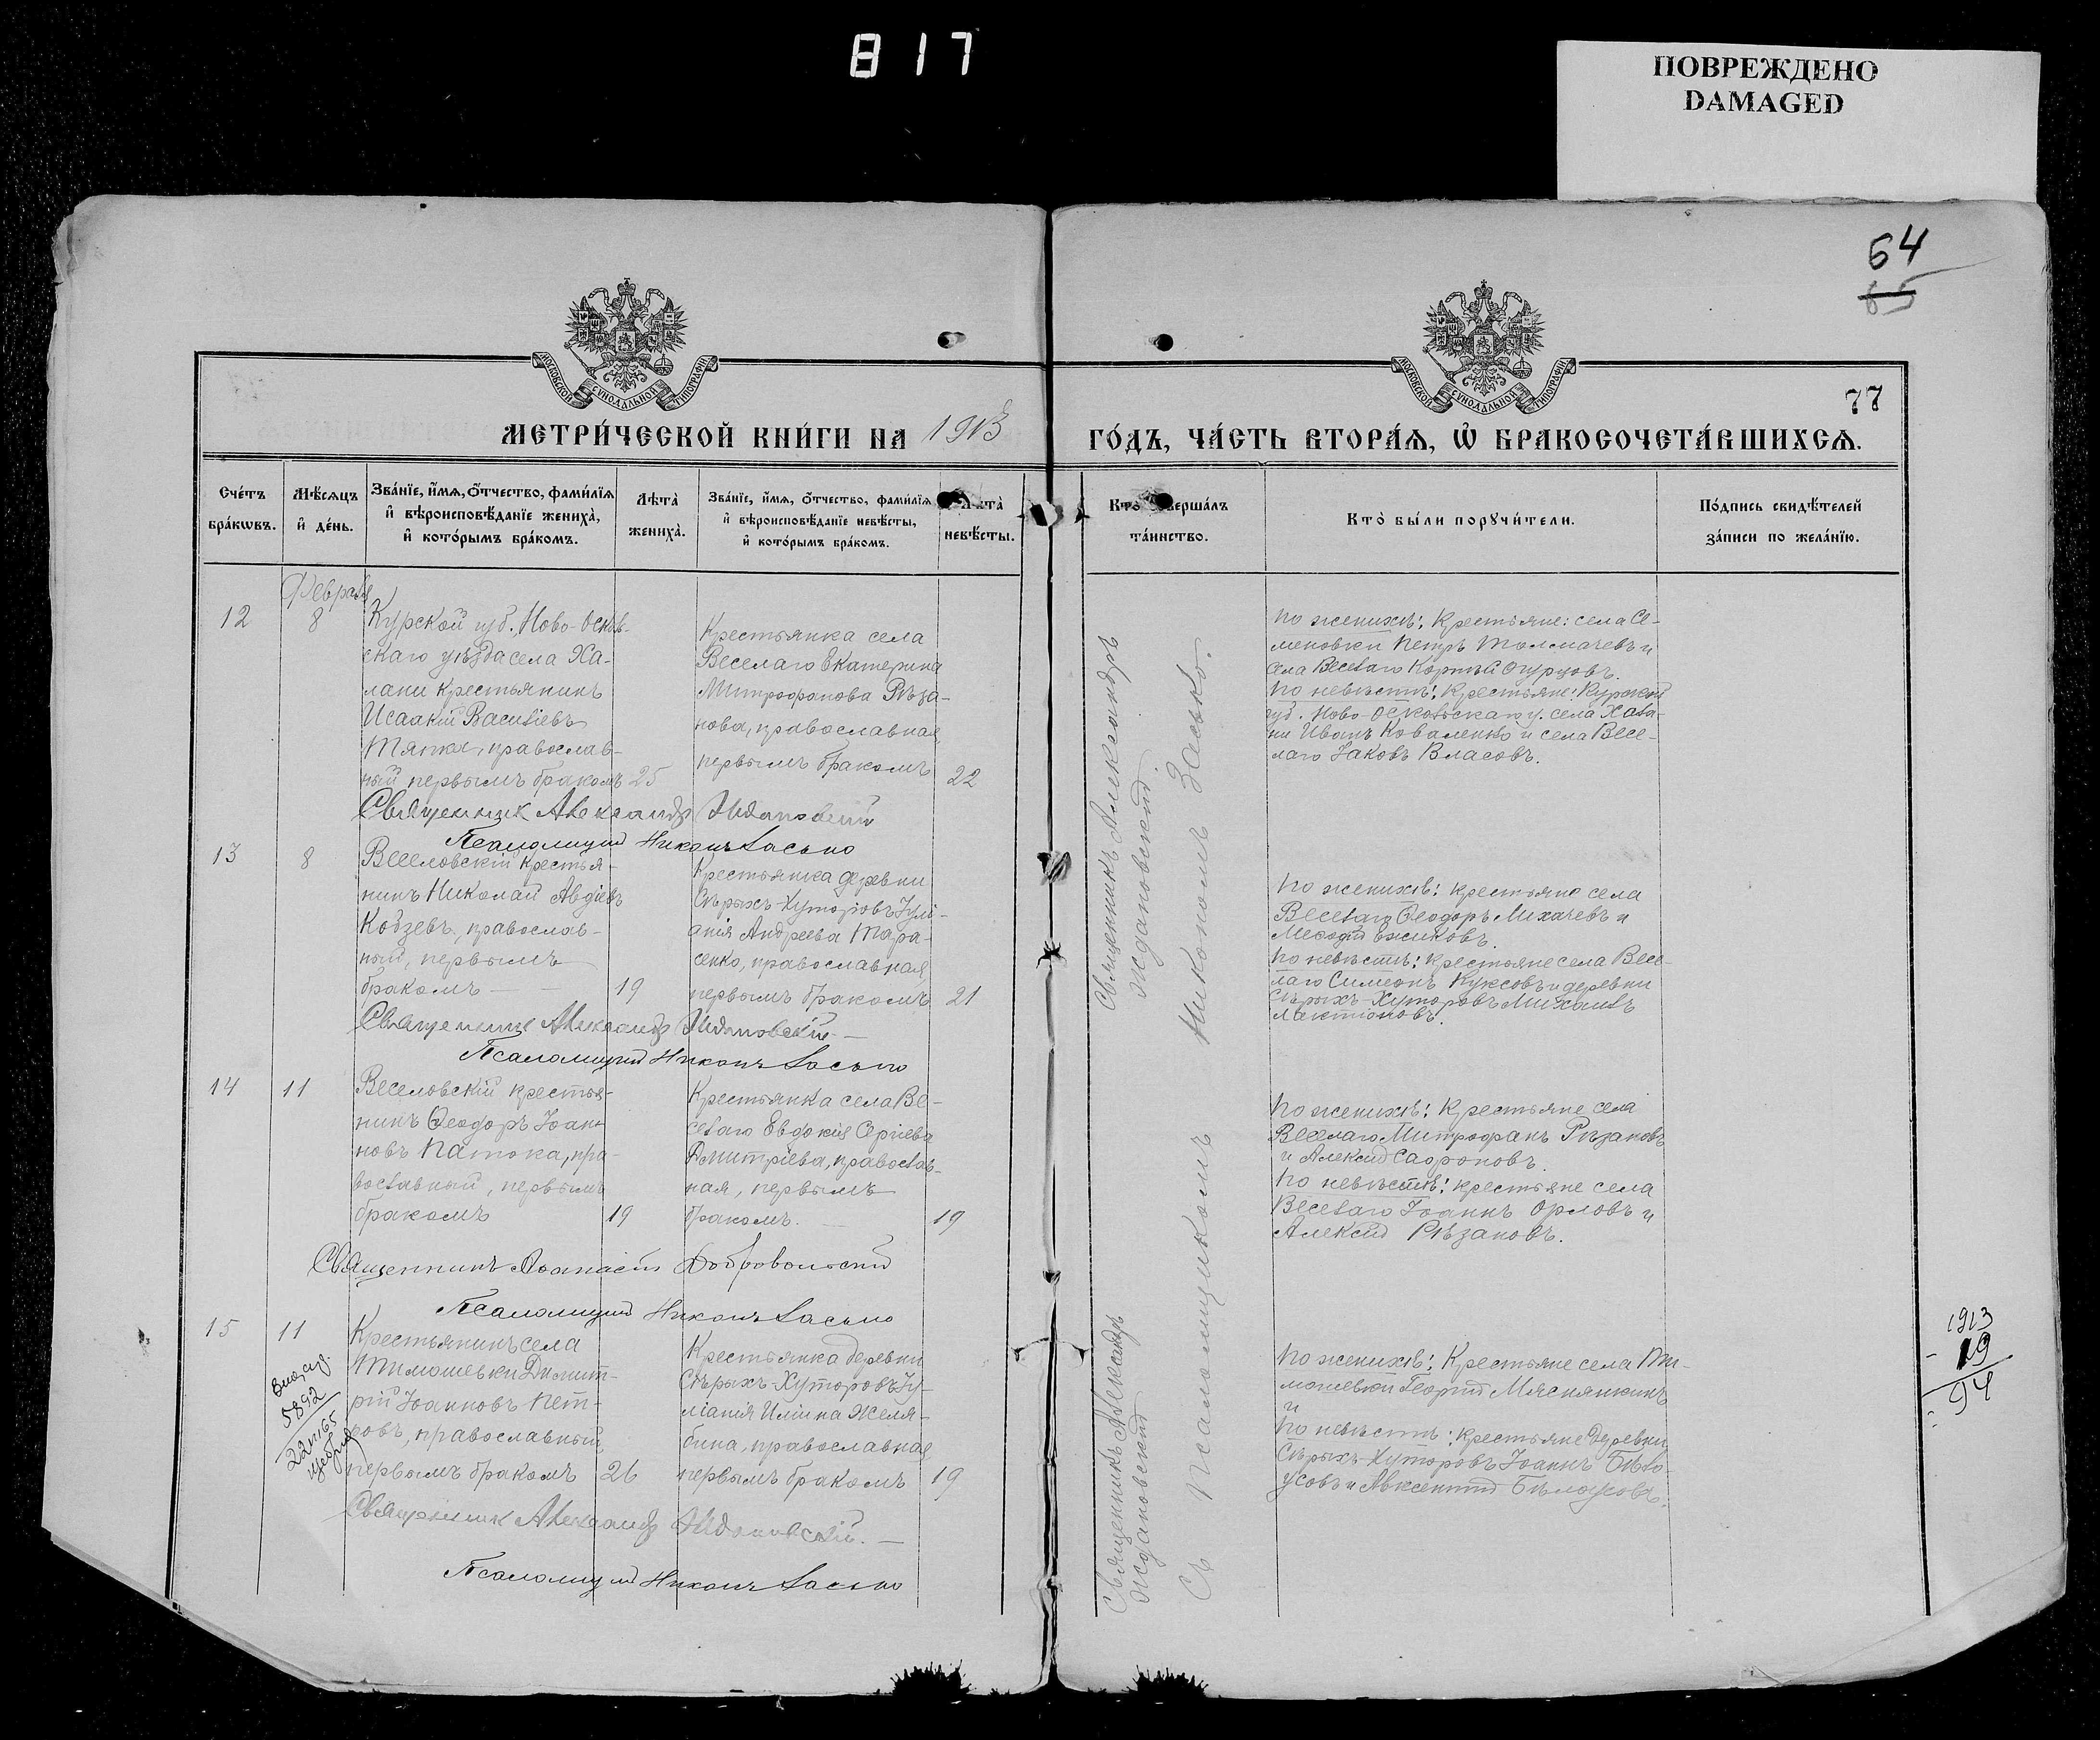 817
ПОВРЕЖДЕНО
DAMAGED
64
65
77
МОСКОВСКОЙ СѴНОДАЛЬНОЙ ТИПОГРАФІИ
МОСКОВСКОЙ СѴНОДАЛЬНОЙ ТИПОГРАФІИ
МЕТРИ́ЧЕСКОЙ КНИ́ГИ НА 1913
ГО́ДЪ, ЧА́СТЬ ВТОРА́Ѧ, Ѡ҆ БРАКОСОЧЕТА́ВШИХСѦ.
Сче́тъ бра́кѡвъ.
Мѣ́сяцъ и҆ де́нь.
Зва́нїе, и҆́мѧ, ѻ҆́тчество, фами́лїѧ и҆ вѣроисповѣ́данїе жениха̀, и҆ кото́рымъ бра́комъ.
Лѣта̀ жениха̀.
Зва́нїе, и҆́мѧ, ѻ҆́тчество, фами́лїѧ и҆ вѣроисповѣ́данїе невѣ́сты, и҆ кото́рымъ бра́комъ.
Лѣта̀ невѣ́сты.
Кто̀ соверша́лъ та́инство.
Кто̀ бы́ли порꙋчи́тели.
По́дпись свидѣ́телей за́писи по жела́нїю.
Февраля
12
8
Курской губ. Ново-Осколь-
скаго уѣзда села Ха-
лани крестьянинъ
Исаакій Василіевъ
Тяпка, православ-
ный первымъ бракомъ
25
Крестьянка села
Веселаго Екатерина
Митрофанова Рѣза-
нова, православная,
первымъ бракомъ
22
По женихѣ: Крестьяне: села Се-
меновки Петръ Толмачевъ и
села Веселаго Корнѣй Огурцовъ.
По невѣстѣ: Крестьяне: Курской
губ. Ново-Оскольскаго у. села Хала-
ни Иванъ Коваленко и села Весе-
лаго Іаковъ Власовъ.
Священник Александр Ждановский
Псаломщик Никонъ Засько
13
8
Веселовскій крестья-
нинъ Николай Авдіевъ
Кобзевъ, православ-
ный, первымъ
бракомъ
19
Крестьянка деревни
Сѣрыхъ-Хуторовъ Іулі-
анія Андреева Тара-
сенко, православная,
первымъ бракомъ
21
По женихѣ: крестьяне села
Веселаго Ѳеодоръ Лихачевъ и
По невѣстѣ: крестьяне села Весе-
лаго Симеонъ Куксовъ и деревни
Сѣрыхъ-Хуторовъ Михаилъ
Лактіоновъ.
Священникъ Александр Ждановскій
Псаломщик Никонъ Засько
14
11
Веселовскій крестья-
нинъ Ѳеодоръ Іоан-
новъ Патока, пра-
вославный, первымъ
бракомъ
19
Крестьянка села Ве-
селаго Евдокія Сергіева
Дмитріева, православ-
ная, первымъ
бракомъ.
19
По женихѣ: Крестьяне села
Веселаго Митрофанъ Рѣзановъ
и Алексій Сафроновъ.
По невѣстѣ: крестьяне села
Веселаго Іоаннъ Орловъ и
Алексій Рѣзановъ.
Священникъ Аѳанасій Добровольскій
Псаломщик Никонъ Засько
15
11
5892
Крестьянинъ села
Тимошевки Димит-
рій Іоанновъ Пет-
ровъ, православный,
первымъ бракомъ
26
Крестьянка деревни
Сѣрыхъ-Хуторовъ Іу-
ліанія Ильина Желя-
бина, православная
первымъ бракомъ
19
По женихѣ: Крестьяне села Ти-
мошевки Георгій Мяснянкинъ
и
По невѣстѣ: крестьяне деревни
Сѣрыхъ-Хуторовъ Іоаннъ Бѣло-
усовъ и Авксентій Бѣлоусовъ.
Священник Александр Ждановскій.
Псаломщик Никонъ Засько
Священникъ Александръ
Ждановскій
Священникъ Александръ
Ждановскій
Съ псаломщикомъ Никономъ Засько.
1913
- 19
94